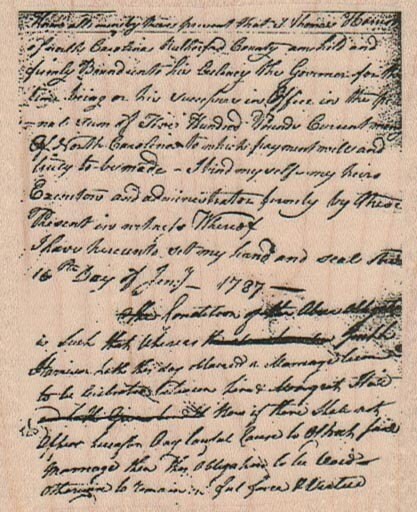 Know all men by these present that I Thomas
of north Carolina Rutherford County am held and
firmly Bound unto his Exclency the Governor for th
time being or his successors in Office in the
sum of Five Hundred Pounds Current mon
Of North Carolina to which payment well and
truly to be made - I bind myself my heirs
Executors and administrators firmly by these
Present in witness Whereof
I have hereunto set my hand and seal this
16th Day of 1787
The Condition of the Above
is Such that whereas
hath this day obtained a Marriage
to be Celebrated between him &
Now if there Shall not
Appear hereafter Any Lawful Cause to
marriage then this Obligation to be Void
Otherwise to remain in full force & Virtue